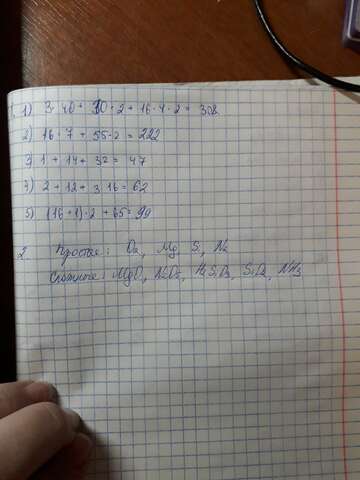 1. 1) 3·40 + 30·2 + 16·4·2 = 308
2) 16·7 + 55·2 = 222
3) 1 + 14 + 32 = 47
4) 2 + 12 + 3·16 = 62
5) (16+1)·2 + 65 = 99
2. Простые: O₂, Mg, S, N₂
Сложные: MgO, N₂O₅, H₂SiO₃, SiO₂, NH₃